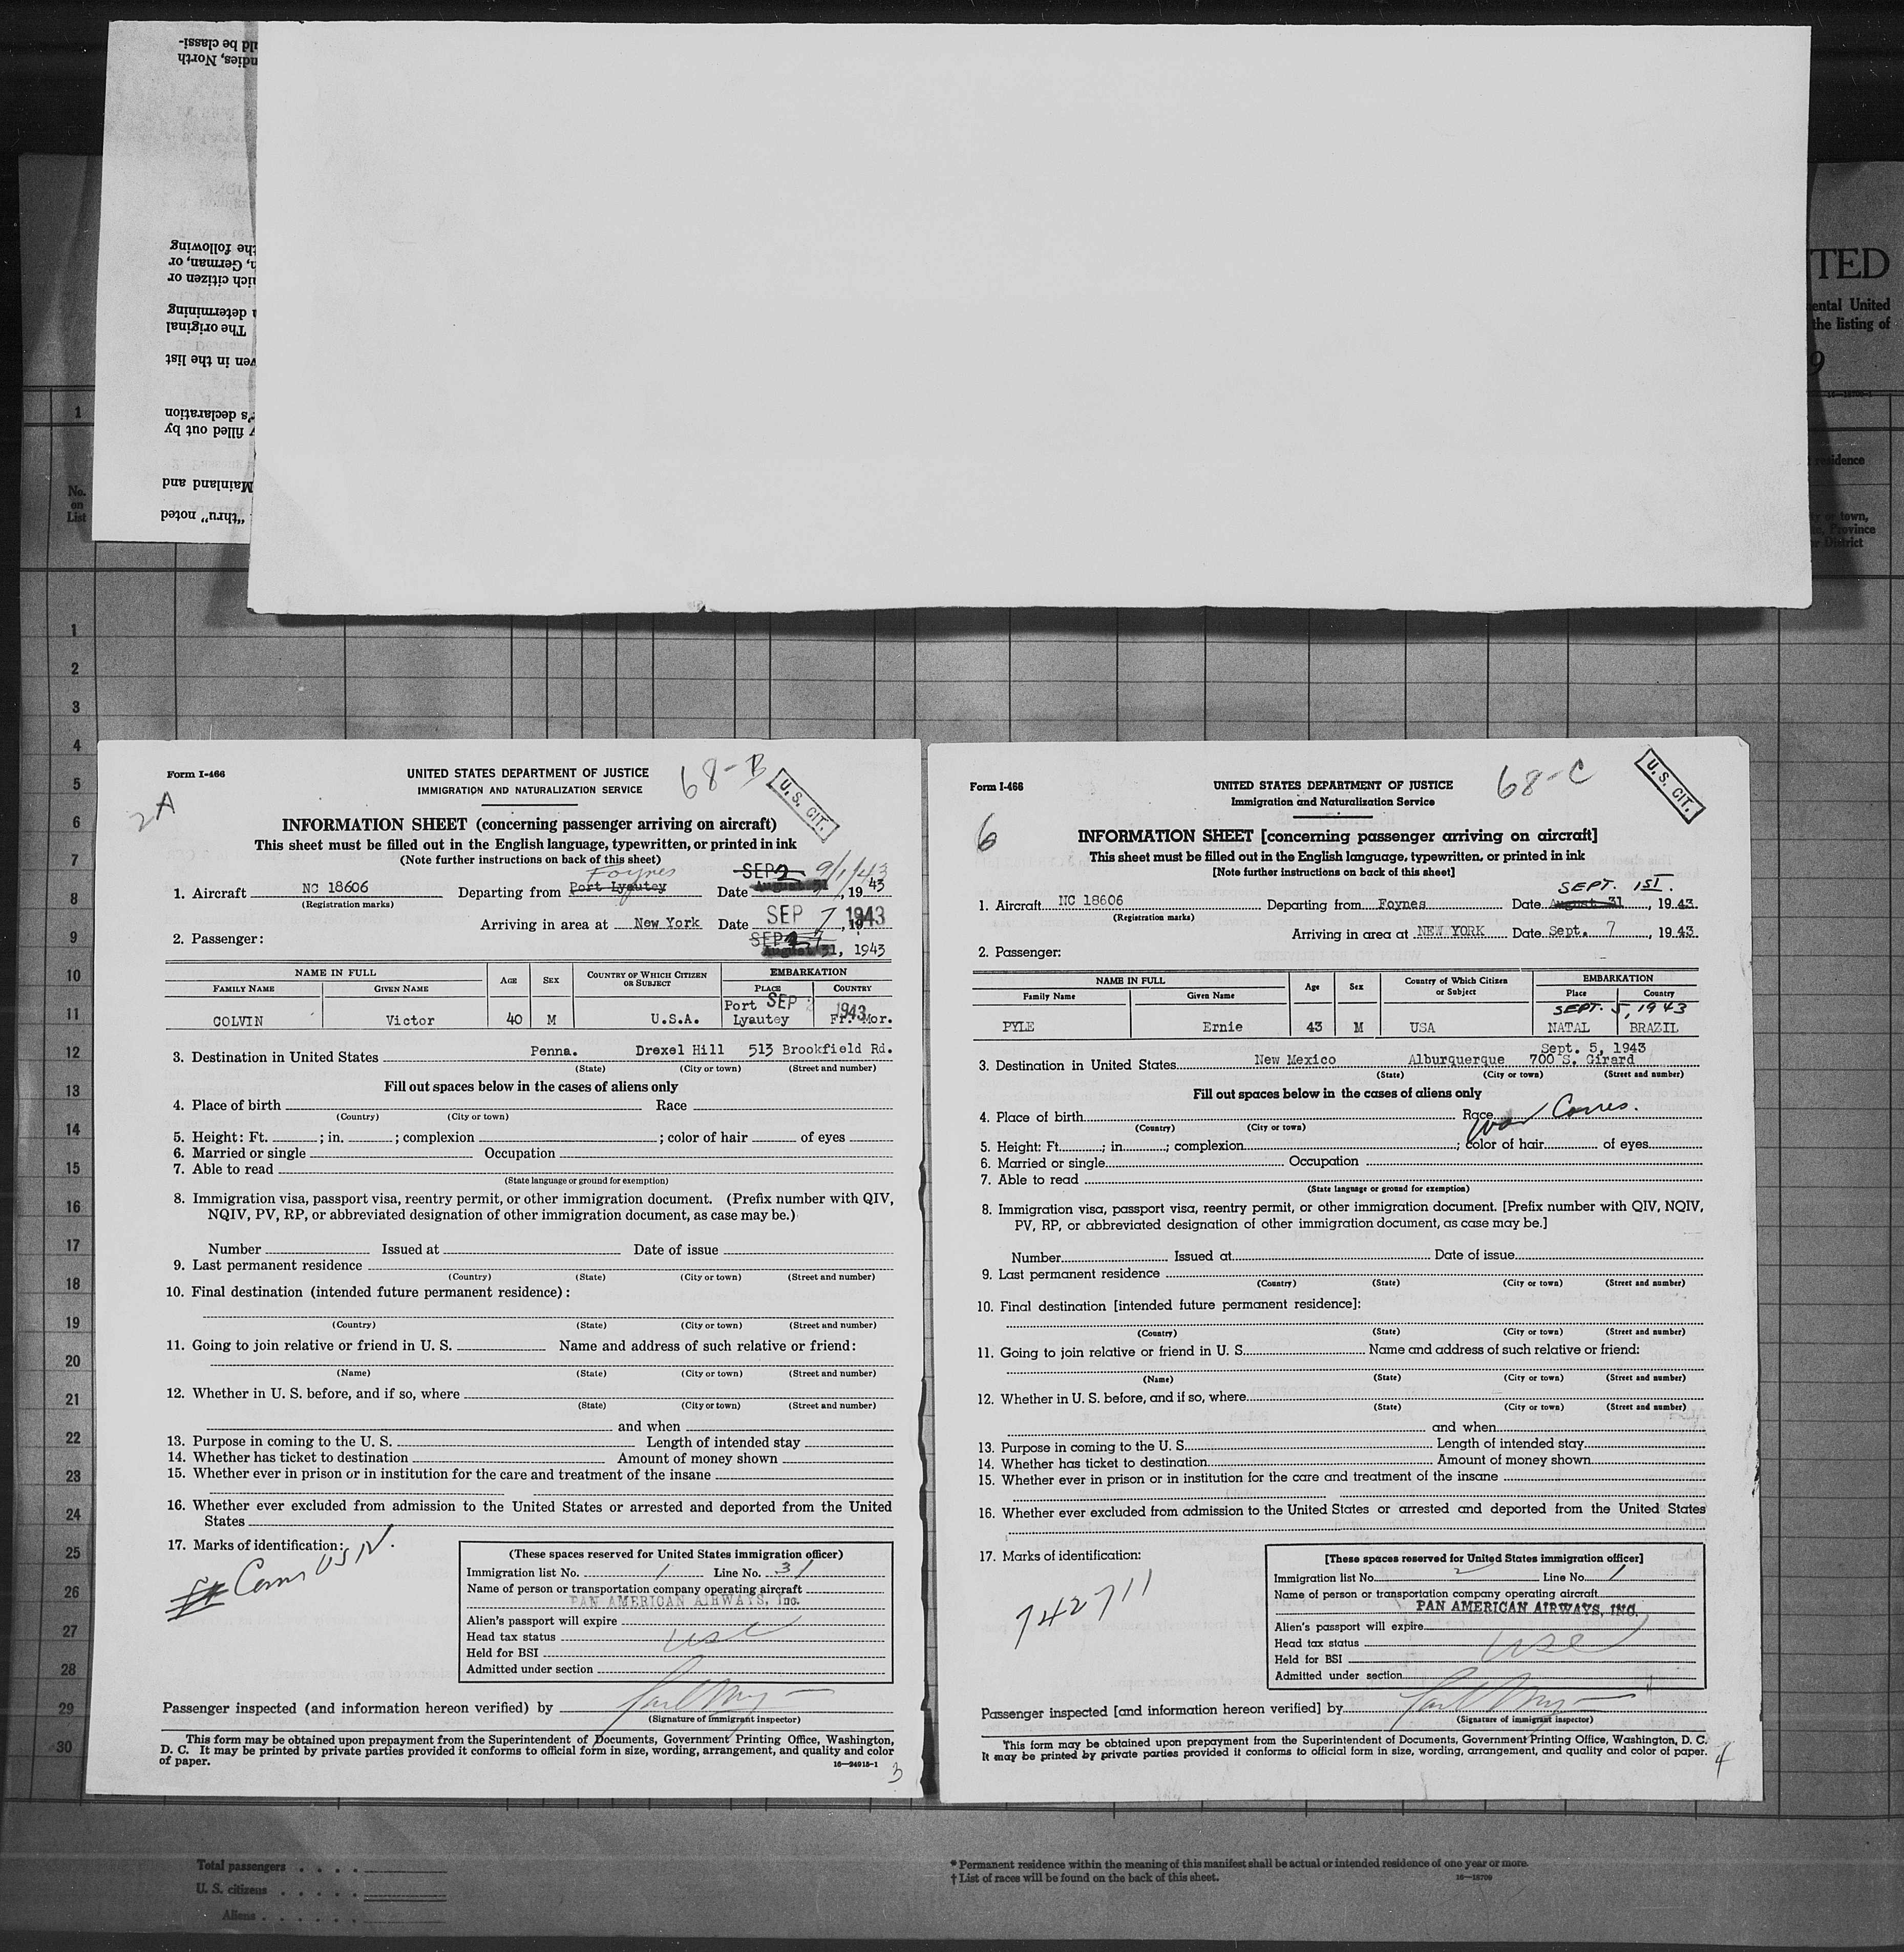 ld be classi-
ndies, North
he following
n, German, or
ich citizen or
determining
The original
ven in the list
's declaration
y filled out by
Mainland and
"thru" noted
TED
ental United
the listing of
9
1
No.
on
List
residence
y or town,
Province
or District
1
2
3
4
5
6
7
8
9
10
11
12
13
14
15
16
17
18
19
20
21
22
23
24
25
26
27
28
29
30
Form I-466
UNITED STATES DEPARTMENT OF JUSTICE
IMMIGRATION AND NATURALIZATION SERVICE
68-B
U. S. CIT.
2A
INFORMATION SHEET (concerning passenger arriving on aircraft)
This sheet must be filled out in the English language, typewritten, or printed in ink
(Note further instructions on back of this sheet)
Foynes SEP 2 9/1/43
1. Aircraft NC 18606 Departing from Port Lyautey Date August 31, 1943
(Registration marks)
Arriving in area at New York Date SEP 7, 1943
2. Passenger: SEP 2 7
August 31, 1943
NAME IN FULL AGE SEX COUNTRY OF WHICH CITIZEN OR SUBJECT EMBARKATION
FAMILY NAME GIVEN NAME PLACE COUNTRY
Port SEP 1943
COLVIN Victor 40 M U.S.A. Lyautey Fr. Mor.
3. Destination in United States Penna. Drexel Hill 513 Brookfield Rd.
(State) (City or town) (Street and number)
Fill out spaces below in the cases of aliens only
4. Place of birth Race
(Country) (City or town)
5. Height: Ft. ; in. ; complexion ; color of hair of eyes
6. Married or single Occupation
7. Able to read
(State language or ground for exemption)
8. Immigration visa, passport visa, reentry permit, or other immigration document. (Prefix number with QIV,
NQIV, PV, RP, or abbreviated designation of other immigration document, as case may be.)
Number Issued at Date of issue
9. Last permanent residence
(Country) (State) (City or town) (Street and number)
10. Final destination (intended future permanent residence):
(Country) (State) (City or town) (Street and number)
11. Going to join relative or friend in U. S. Name and address of such relative or friend:
(Name) (State) (City or town) (Street and number)
12. Whether in U. S. before, and if so, where
(State) (City or town) (Street and number)
and when
13. Purpose in coming to the U. S. Length of intended stay
14. Whether has ticket to destination Amount of money shown
15. Whether ever in prison or in institution for the care and treatment of the insane
16. Whether ever excluded from admission to the United States or arrested and deported from the United
States
17. Marks of identification:
USN.
(These spaces reserved for United States immigration officer)
Immigration list No. 1 Line No. 31
Name of person or transportation company operating aircraft
PAN AMERICAN AIRWAYS, Inc.
Alien's passport will expire
Head tax status usc
Held for BSI
Admitted under section
Passenger inspected (and information hereon verified) by
(Signature of immigrant inspector)
This form may be obtained upon prepayment from the Superintendent of Documents, Government Printing Office, Washington,
D. C. It may be printed by private parties provided it conforms to official form in size, wording, arrangement, and quality and color
of paper. 16—24915-1
3
Form I-466
UNITED STATES DEPARTMENT OF JUSTICE
Immigration and Naturalization Service
68-C
U. S. CIT.
6
INFORMATION SHEET [concerning passenger arriving on aircraft]
This sheet must be filled out in the English language, typewritten, or printed in ink
[Note further instructions on back of this sheet]
SEPT. 1ST.
1. Aircraft NC 18606 Departing from Foynes Date August 31, 1943
(Registration marks)
Arriving in area at NEW YORK Date Sept. 7, 1943
2. Passenger:
NAME IN FULL Age Sex Country of Which Citizen or Subject EMBARKATION
Family Name Given Name Place Country
SEPT. 5, 1943
PYLE Ernie 43 M USA NATAL BRAZIL
Sept. 5, 1943
3. Destination in United States New Mexico Alburquerque 700 S. Girard
(State) (City or town) (Street and number)
Fill out spaces below in the cases of aliens only
4. Place of birth Race
War Corres.
(Country) (City or town)
5. Height: Ft. ; in. ; complexion ; color of hair of eyes
6. Married or single Occupation
7. Able to read
(State language or ground for exemption)
8. Immigration visa, passport visa, reentry permit, or other immigration document. [Prefix number with QIV, NQIV,
PV, RP, or abbreviated designation of other immigration document, as case may be.]
Number Issued at Date of issue
9. Last permanent residence
(Country) (State) (City or town) (Street and number)
10. Final destination [intended future permanent residence]:
(Country) (State) (City or town) (Street and number)
11. Going to join relative or friend in U. S. Name and address of such relative or friend:
(Name) (State) (City or town) (Street and number)
12. Whether in U. S. before, and if so, where
(State) (City or town) (Street and number)
and when
13. Purpose in coming to the U. S. Length of intended stay
14. Whether has ticket to destination Amount of money shown
15. Whether ever in prison or in institution for the care and treatment of the insane
16. Whether ever excluded from admission to the United States or arrested and deported from the United States
17. Marks of identification:
742711
[These spaces reserved for United States immigration officer]
Immigration list No. 2 Line No. 1
Name of person or transportation company operating aircraft
PAN AMERICAN AIRWAYS, INC.
Alien's passport will expire
Head tax status usc
Held for BSI
Admitted under section
Passenger inspected [and information hereon verified] by
(Signature of immigrant inspector)
This form may be obtained upon prepayment from the Superintendent of Documents, Government Printing Office, Washington, D. C.
It may be printed by private parties provided it conforms to official form in size, wording, arrangement, and quality and color of paper.
4
Total passengers
U. S. citizens
Aliens
* Permanent residence within the meaning of this manifest shall be actual or intended residence of one year or more.
† List of races will be found on the back of this sheet. 16—18709